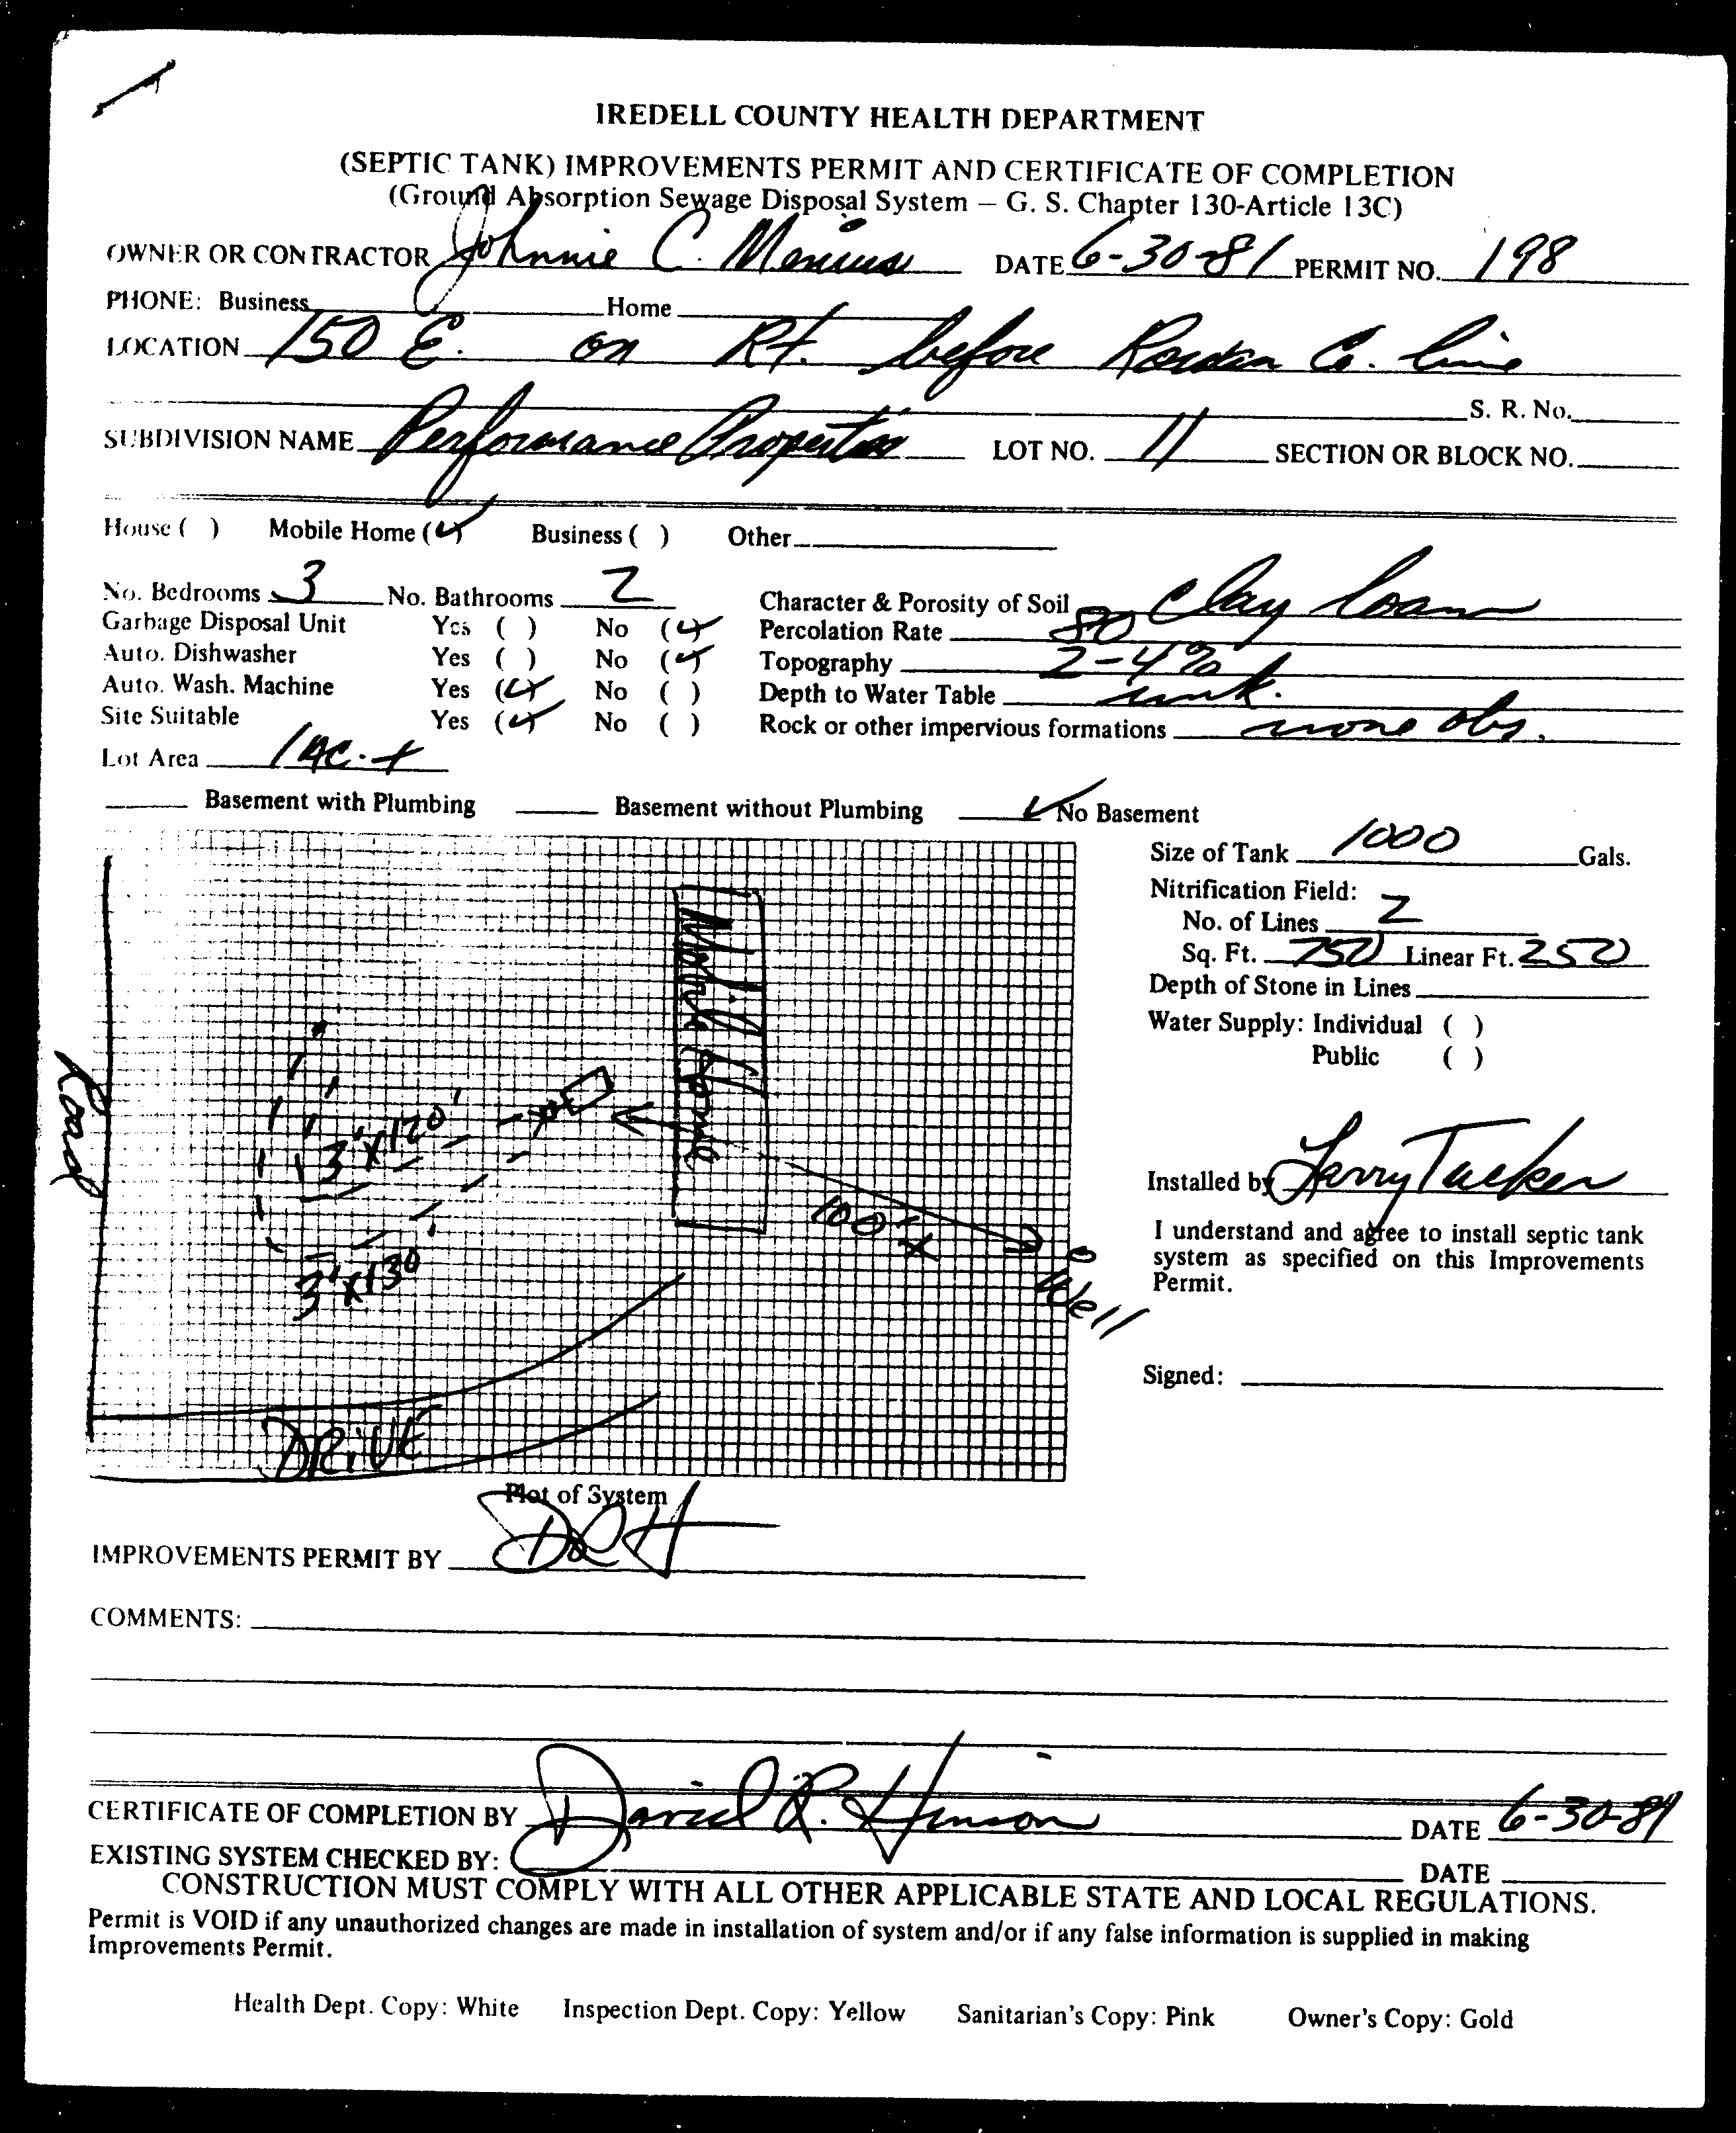 IREDELL COUNTY HEALTH DEPARTMENT
(SEPTIC TANK) IMPROVEMENTS PERMIT AND CERTIFICATE OF COMPLETION
(Ground Absorption Sewage Disposal System – G. S. Chapter 130-Article 13C)
OWNER OR CONTRACTOR Johnnie C. Menius DATE 6-30-81 PERMIT NO. 198
PHONE: Business Home
LOCATION 150 E. on Rt. before Rowan Co. line
S. R. No.
SUBDIVISION NAME Performance Properties LOT NO. 11 SECTION OR BLOCK NO.
House ( ) Mobile Home (✓) Business ( ) Other
No. Bedrooms 3 No. Bathrooms 2 Character & Porosity of Soil Clay loam
Garbage Disposal Unit Yes ( ) No (✓) Percolation Rate 80
Auto. Dishwasher Yes ( ) No (✓) Topography 2-4%
Auto. Wash. Machine Yes (✓) No ( ) Depth to Water Table unk.
Site Suitable Yes (✓) No ( ) Rock or other impervious formations none obs.
Lot Area 1 AC. +
Basement with Plumbing Basement without Plumbing ✓ No Basement
Size of Tank 1000 Gals.
Nitrification Field:
No. of Lines 2
Sq. Ft. 750 Linear Ft. 250
Depth of Stone in Lines
Water Supply: Individual ( )
Public ( )
Mobile Home
Road
3'x120'
100'+
Well
3'x130
DRIVE
Installed by Jerry Tucker
I understand and agree to install septic tank
system as specified on this Improvements
Permit.
Signed:
Plot of System
IMPROVEMENTS PERMIT BY DRH
COMMENTS:
CERTIFICATE OF COMPLETION BY David R. Hinson DATE 6-30-81
EXISTING SYSTEM CHECKED BY: DATE
CONSTRUCTION MUST COMPLY WITH ALL OTHER APPLICABLE STATE AND LOCAL REGULATIONS.
Permit is VOID if any unauthorized changes are made in installation of system and/or if any false information is supplied in making
Improvements Permit.
Health Dept. Copy: White Inspection Dept. Copy: Yellow Sanitarian's Copy: Pink Owner's Copy: Gold